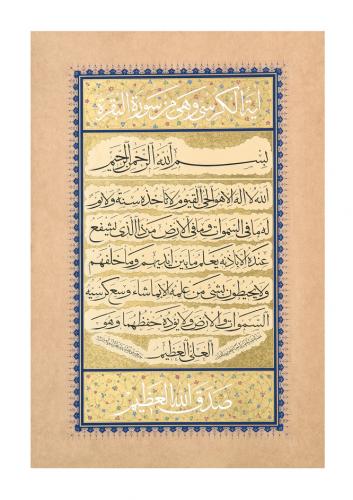 آية الكرسي وهي من سورة البقرة
بسم الله الرحمن الرحيم
الله لا اله الا هو الحي القيوم لا تأخذه سنة ولا نوم
له ما في السموات وما في الأرض من ذا الذي يشفع
عنده الا باذنه يعلم ما بين ايديهم وما خلفهم
ولا يحيطون بشئ من علمه الا بما شاء وسع كرسيه
السموات والأرض ولا يؤده حفظهما وهو
العلي العظيم
صدق الله العظيم